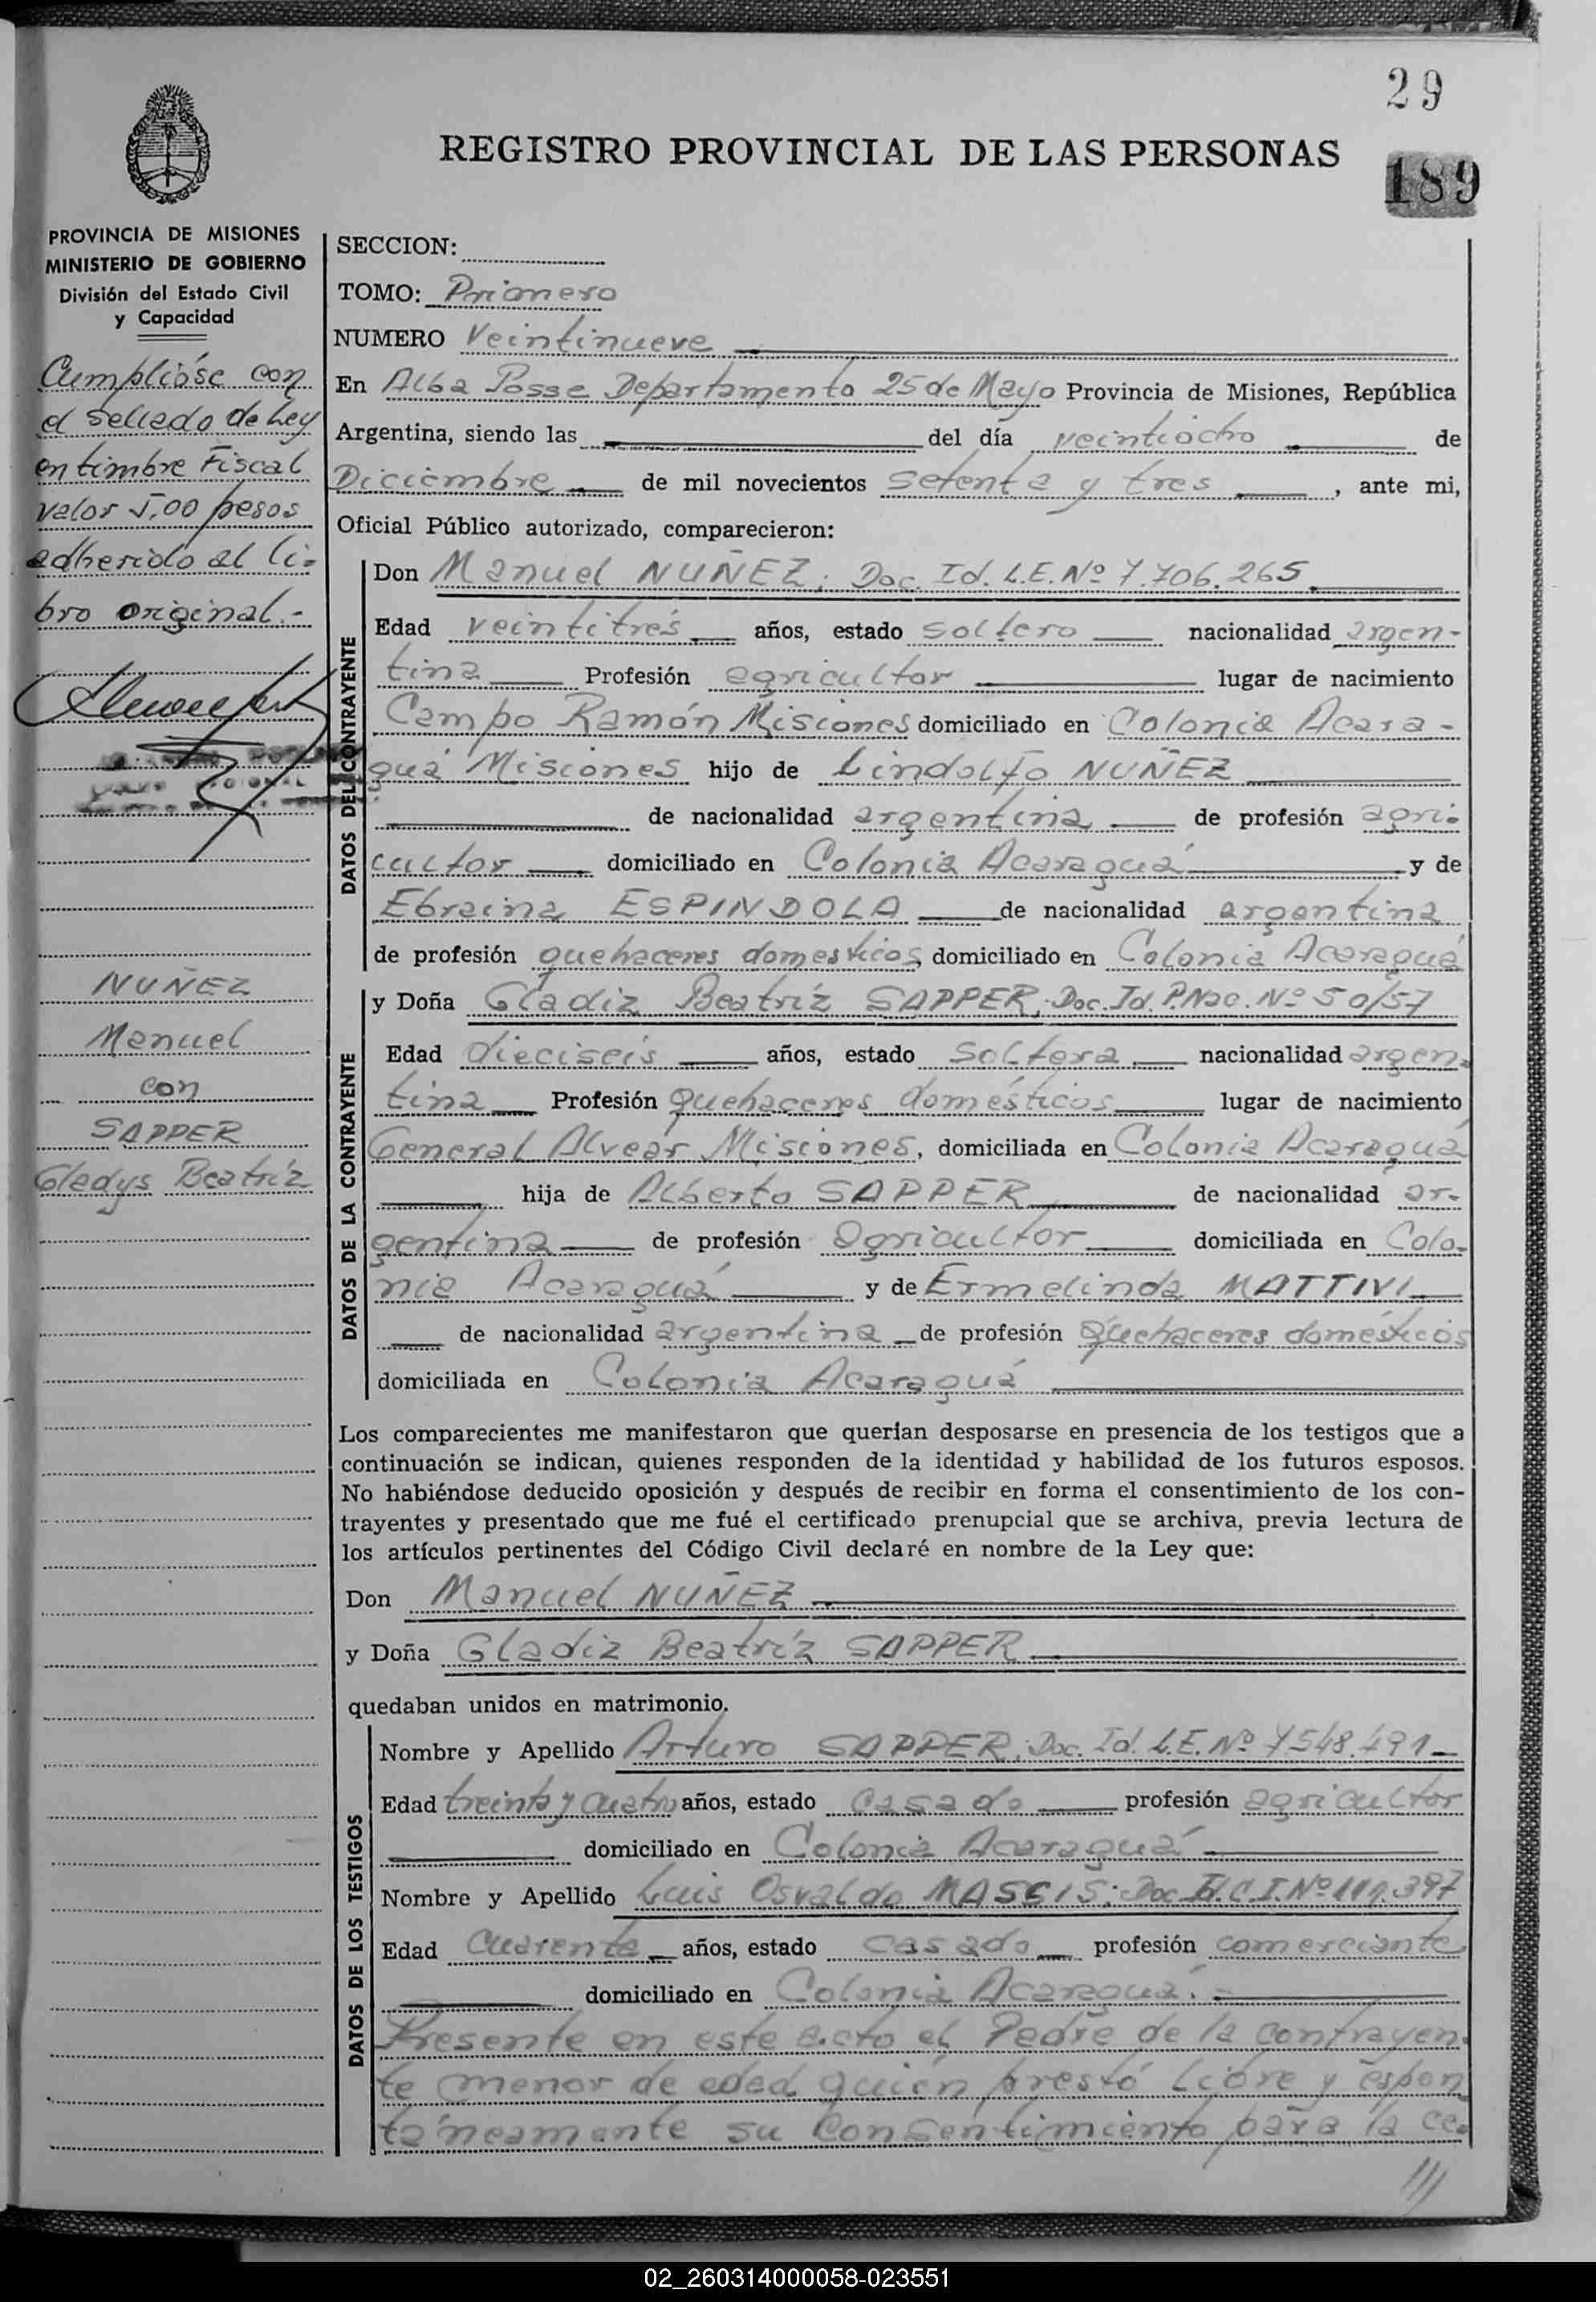 29
REGISTRO PROVINCIAL DE LAS PERSONAS
189
PROVINCIA DE MISIONES
MINISTERIO DE GOBIERNO
División del Estado Civil
y Capacidad
Cumplióse con
el Sellado de Ley
en timbre Fiscal
valor 5,00 pesos
adherido al li-
bro original.-
NUÑEZ
Manuel
con
SAPPER
Gladys Beatríz
SECCION:
TOMO: Primero
NUMERO Veintinueve
En Alba Posse Departamento 25 de Mayo Provincia de Misiones, República
Argentina, siendo las del día veintiocho de
Diciembre de mil novecientos setenta y tres, ante mi,
Oficial Público autorizado, comparecieron:
DATOS DEL CONTRAYENTE
Don Manuel NUÑEZ; Doc. Id. L.E. Nº 7.706.265
Edad veintitrés años, estado soltero nacionalidad argen-
tina Profesión agricultor lugar de nacimiento
Campo Ramón Misiones domiciliado en Colonia Acara-
guá Misiones hijo de Lindolfo NUÑEZ
de nacionalidad argentina de profesión agri-
cultor domiciliado en Colonia Acaraguá y de
Ebraina ESPINDOLA de nacionalidad argentina
de profesión quehaceres domesticos, domiciliado en Colonia Acaraguá
DATOS DE LA CONTRAYENTE
y Doña Gladiz Beatríz SAPPER; Doc. Id. P.Nac. Nº 50/57
Edad dieciseis años, estado Soltera nacionalidad argen-
tina Profesión Quehaceres domésticos lugar de nacimiento
General Alvear Misiones, domiciliada en Colonia Acaraguá
hija de Alberto SAPPER de nacionalidad ar-
gentina de profesión agricultor domiciliada en Colo-
nia Acaraguá y de Ermelinda MATTIVI
de nacionalidad argentina de profesión Quehaceres domésticos
domiciliada en Colonia Acaraguá
Los comparecientes me manifestaron que querían desposarse en presencia de los testigos que a
continuación se indican, quienes responden de la identidad y habilidad de los futuros esposos.
No habiéndose deducido oposición y después de recibir en forma el consentimiento de los con-
trayentes y presentado que me fué el certificado prenupcial que se archiva, previa lectura de
los artículos pertinentes del Código Civil declaré en nombre de la Ley que:
Don Manuel NUÑEZ
y Doña Gladiz Beatríz SAPPER
quedaban unidos en matrimonio.
DATOS DE LOS TESTIGOS
Nombre y Apellido Arturo SAPPER; Doc. Id. L.E. Nº 7548.491
Edad treinta y cuatro años, estado casado profesión agricultor
domiciliado en Colonia Acaraguá
Nombre y Apellido Luis Osvaldo MASSIS; Doc. Id. C.I. Nº 111.397
Edad Cuarenta años, estado casado profesión comerciante
domiciliado en Colonia Acaraguá.
Presente en este acto el Padre de la contrayen-
te menor de edad quién prestó libre y espon
táneamente su consentimiento para la ce-
///
02_260314000058-023551